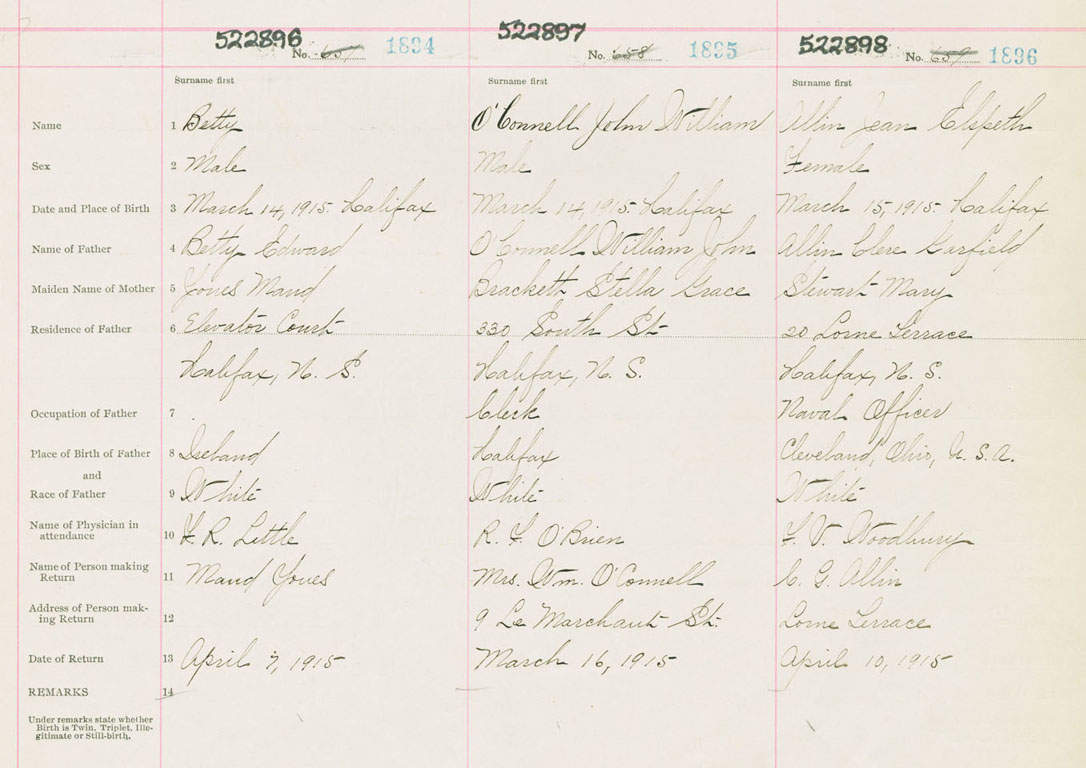 522896 No. 657 1834
522897 No. 658 1835
522898 No. 659 1836
Surname first Surname first Surname first
Name 1 Betty O'Connell John William Allin Jean Elspeth
Sex 2 Male Male Female
Date and Place of Birth 3 March 14, 1915. Halifax March 14, 1915. Halifax March 15, 1915. Halifax
Name of Father 4 Betty Edward O'Connell William John Allin Clere Garfield
Maiden Name of Mother 5 Jones Maud Brackett Stella Grace Stewart Mary
Residence of Father 6 Elevator Court 330 South St. 20 Lorne Terrace
Halifax, N. S. Halifax, N. S. Halifax, N. S.
Occupation of Father 7 Clerk Naval Officer
Place of Birth of Father 8 Ireland Halifax Cleveland, Ohio, U. S. A.
and
Race of Father 9 White White White
Name of Physician in
attendance 10 F. R. Little R. F. O'Brien F. V. Woodbury
Name of Person making
Return 11 Maud Jones Mrs. Wm. O'Connell C. G. Allin
Address of Person mak-
ing Return 12 9 Le Marchant St. Lorne Terrace
Date of Return 13 April 7, 1915 March 16, 1915 April 10, 1915
REMARKS 14
Under remarks state whether
Birth is Twin, Triplet, Ille-
gitimate or Still-birth.